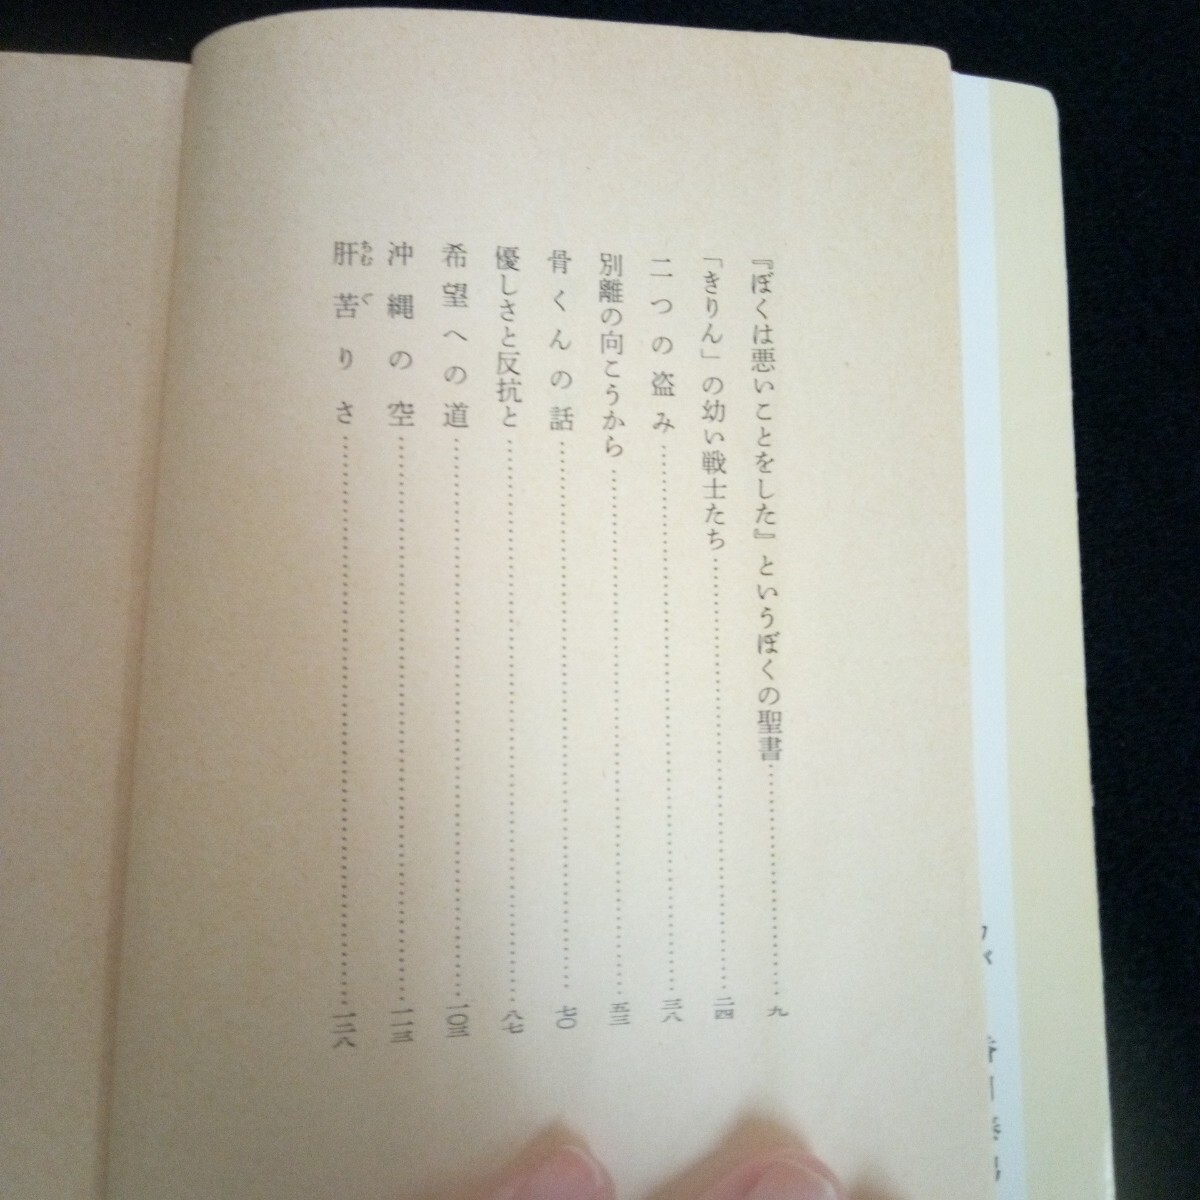 『ぼくは悪いことをした』というぼくの聖書……九
「きりん」の幼い戦士たち……二四
二つの盗み……三八
別離の向こうから……五三
骨くんの話……七〇
優しさと反抗と……八七
希望への道……一〇三
沖縄の空……一一三
肝苦りさ……一二八
ちむぐ